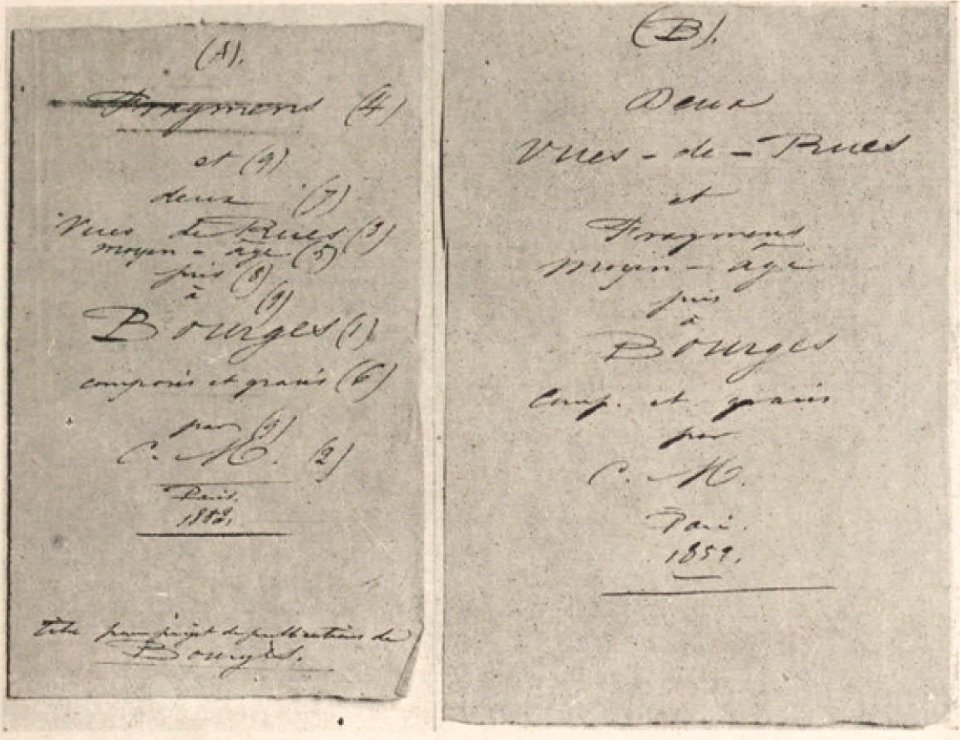 (A).
Fragmens (4)
et (9)
deux (7)
Vues de Rues (3)
moyen-âge (5)
pris (8)
à (9)
Bourges (1)
composés et gravés (6)
par (9)
C. M. (2)
Paris.
titre pour projet de publication de
Bourges.
(B).
Deux
Vues-de-Rues
et
Fragmens
moyen-âge
pris
à
Bourges
Comp. et gravés
par
C. M.
Paris.
1859.